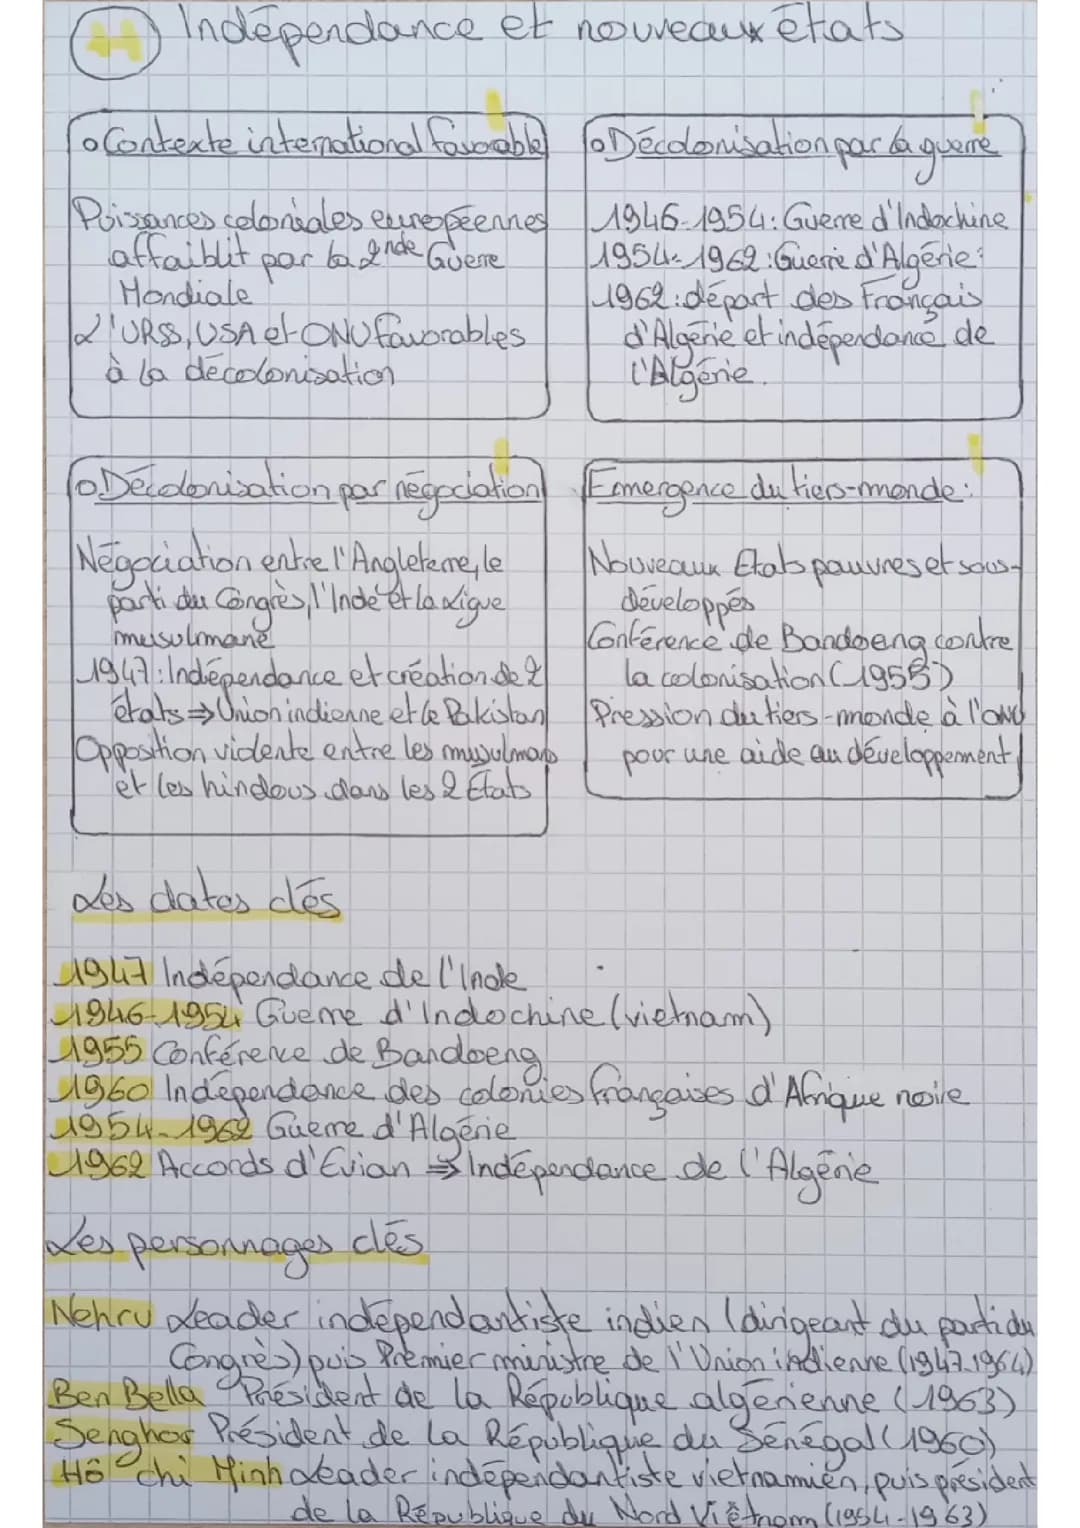 H Indépendance et nouveaux états
o Contexte international favorable
Puissances coloniales europpéennes
affaiblit par la 2nde Guerre
Mondiale
L'URSS, USA et ONU favorables
à la décolonisation
o Décolonisation par la guerre
1946-1954: Guerre d'Indochine
1954-1962: Guerre d'Algérie:
1962: départ des Français
d'Algérie et indépendance de
l'Algérie.
o Décolonisation par négociation
Négociation entre l'Angleterre, le
parti du Congrès, l'Inde et la Ligue
musulmane
1947: Indépendance et création de 2
états ⇒ Union indienne et le Pakistan
Opposition violente entre les musulmans
et les hindous dans les 2 États
Emergence du tiers-monde:
Nouveaux Etats pauvres et sous-
développés
Conférence de Bandoeng contre
la colonisation (1955)
Pression du tiers-monde à l'ONU
pour une aide au développement
Les dates clés
1947 Indépendance de l'Inde
1946-1954 Guerre d'Indochine (vietnam)
1955 Conférence de Bandoeng
1960 Indépendance des colonies françaises d'Afrique noire
1954-1962 Guerre d'Algérie
1962 Accords d'Evian ⇒ Indépendance de l'Algérie
Les personnages clés
Nehru Leader indépendantiste indien (dirigeant du parti du
Congrès) puis Premier ministre de l'Union indienne (1947.1964)
Ben Bella Président de la République algérienne (1963)
Senghor Président de la République du Sénégal (1960)
Hô chi Minh Leader indépendantiste vietnamien, puis président
de la République du Nord Viêtnam (1954-1963)